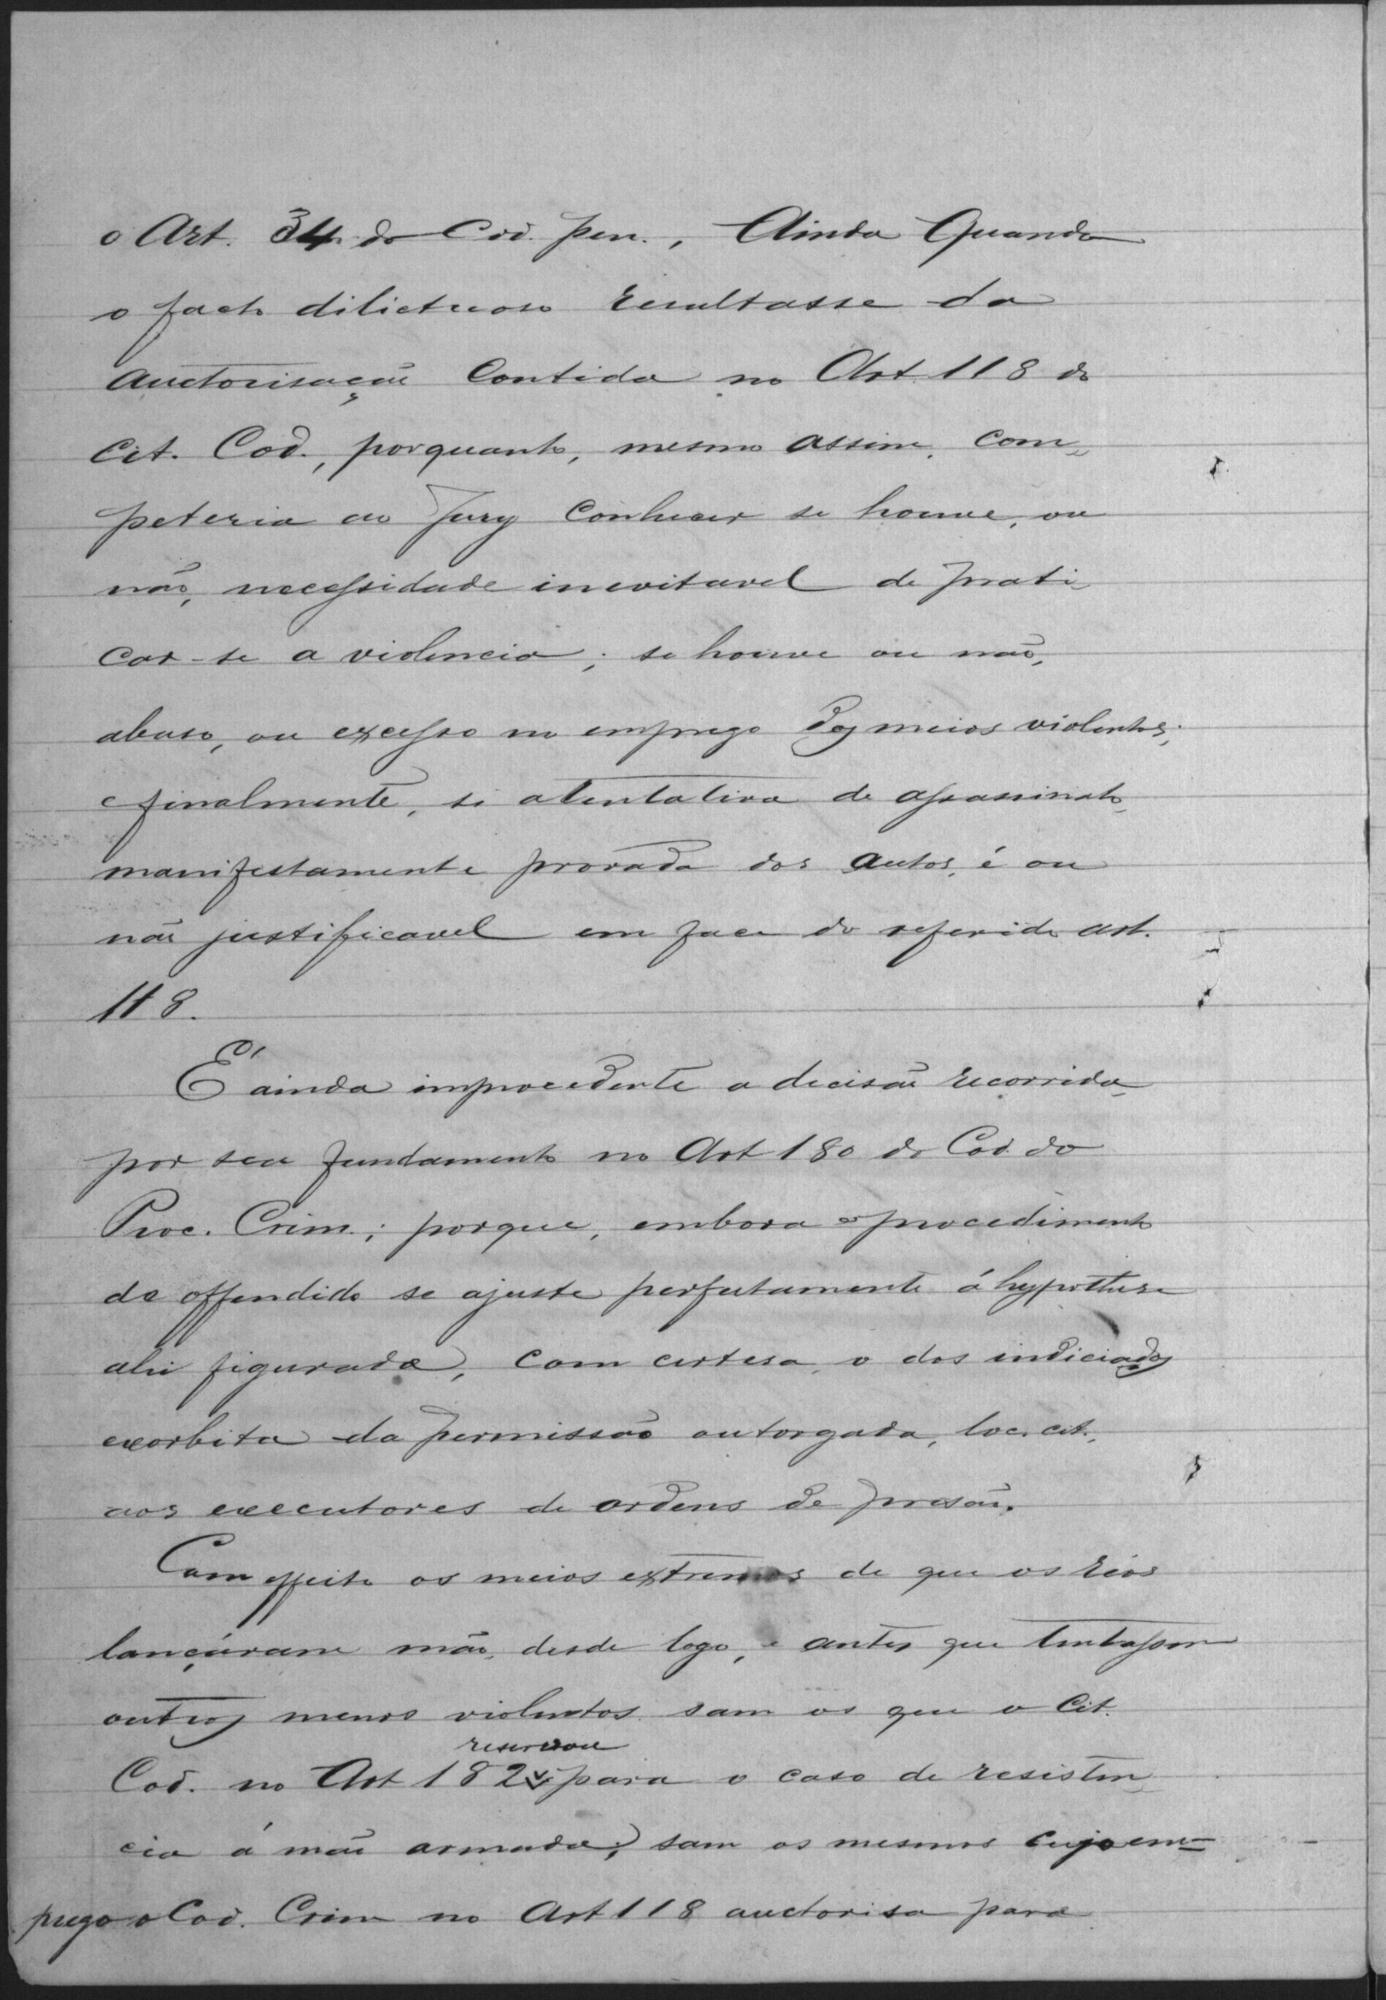 o Art. 34 do Cod. pen., Ainda Quando
o facto dilictuoso resultasse da
auctorisação Contida no Art. 118 do
Cit. Cod., porquanto, mesmo assim, com-
peteria ao Jury conhecer se houve, ou
não, necessidade inevitavel de prati-
car-se a violencia; se houve ou não,
abuso, ou excesso no emprego dos meios violentos;
e finalmente, si a tentativa de assassinato,
manifestamente provada dos autos, é ou
não justificavel em face do referido art.
118.
É ainda improcedente a decisão recorrida,
por seu fundamento no Art 180 do Cod. do
Proc. Crim.; porque, embora o procedimento
do offendido se ajuste perfeitamente á hypothese
ahi figurada, com certesa, o dos indiciados
exorbita da permissão outorgada, loc. cit.,
aos executores de ordens de prisão.
Com effeito os meios extremos de que os réos
lançáram mão, desde logo, e antes que tentassem
outros menos violentos sam os que o Cit.
reservou
Cod. no Art 182 para o caso de resisten-
cia á mão armada; sam os mesmos cujo em-
prego o Cod. Crim no Art 118 auctorisa para